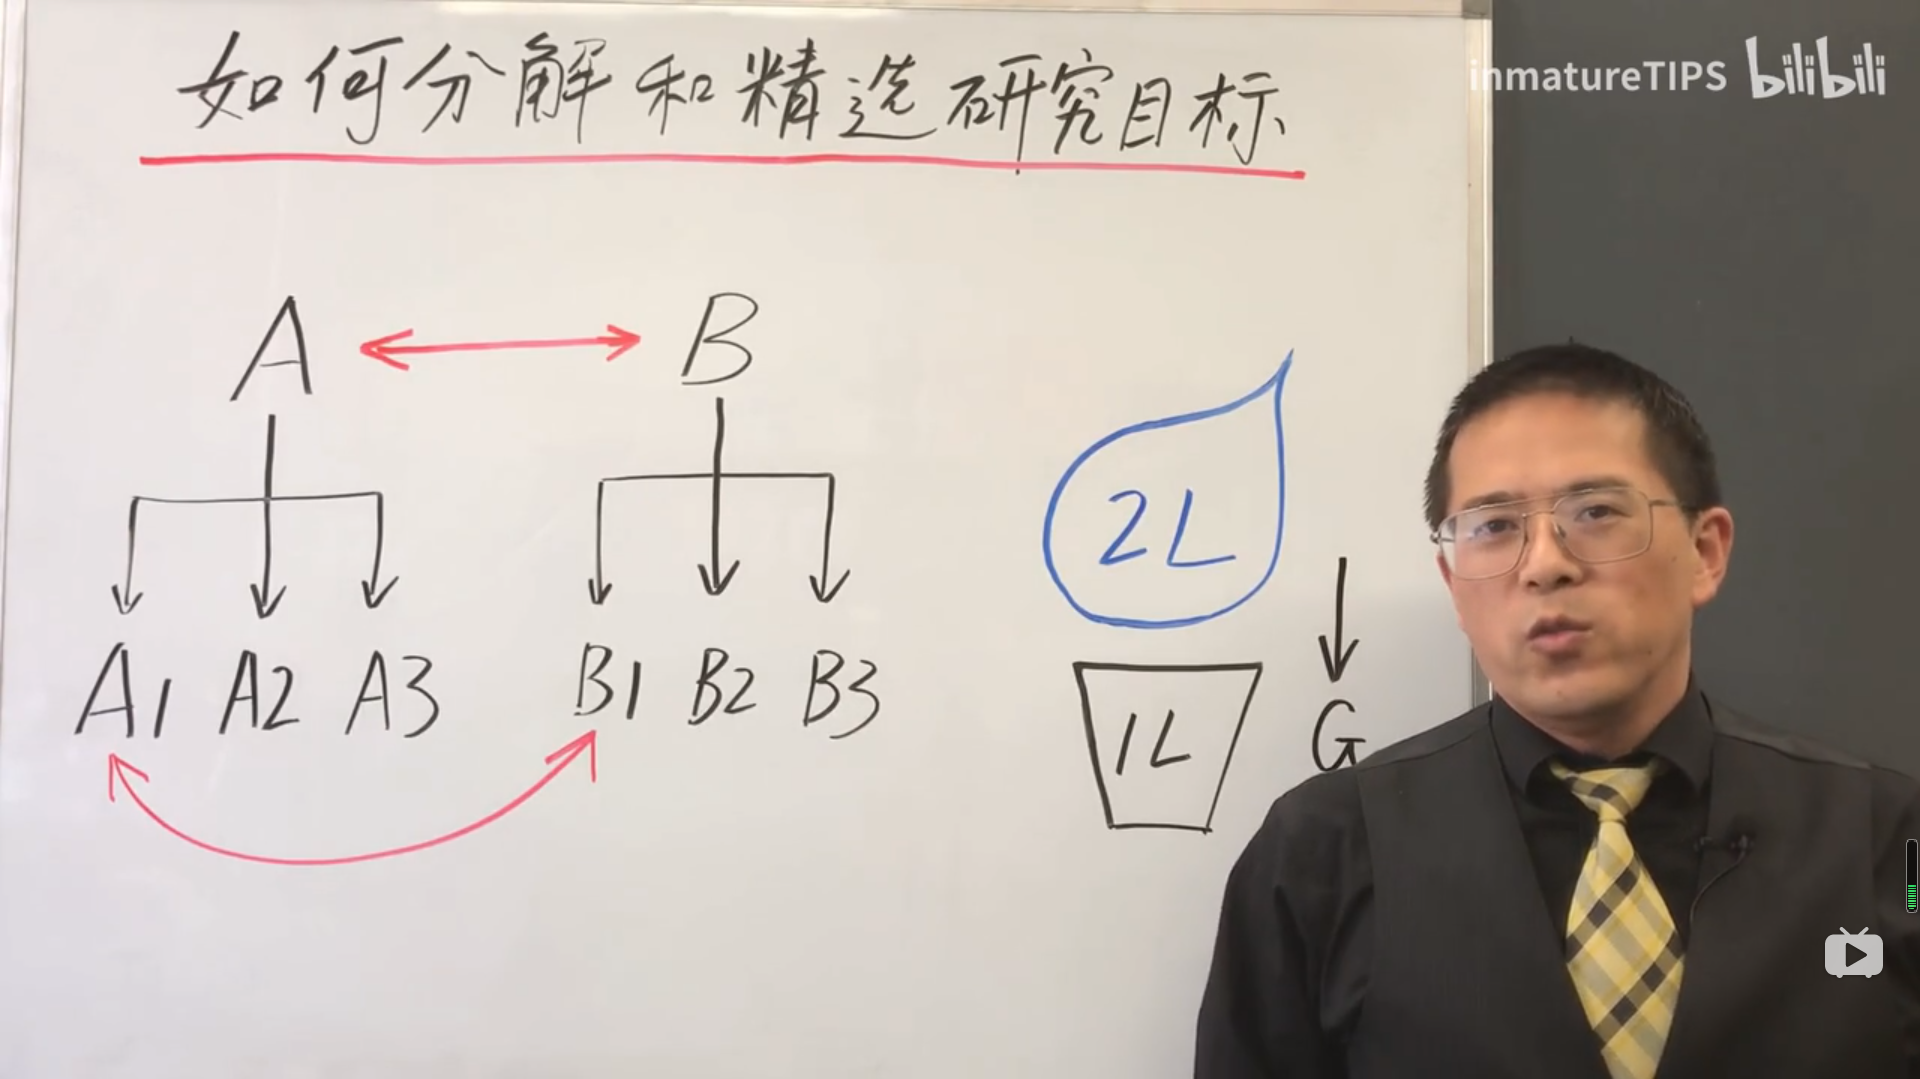 如何分解和精选研究目标
inmatureTIPS bilibili
A B
A1 A2 A3 B1 B2 B3
2L
1L
G